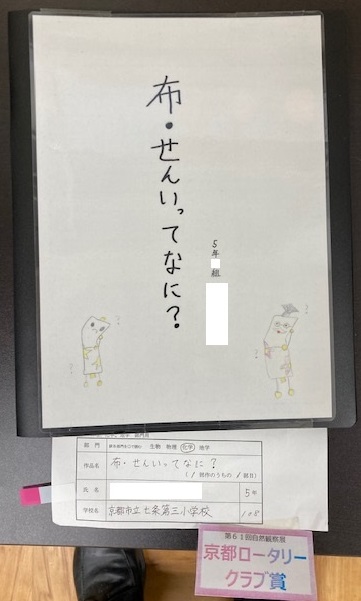 布・せんいってなに?
5年 組
部 門 生物 物理 化学 地学
作品名 布・せんいってなに?
(1部作のうち 1部目)
氏 名 5年
学校名 京都市立七条第三小学校 108
第61回自然観察展
京都ロータリー
クラブ賞